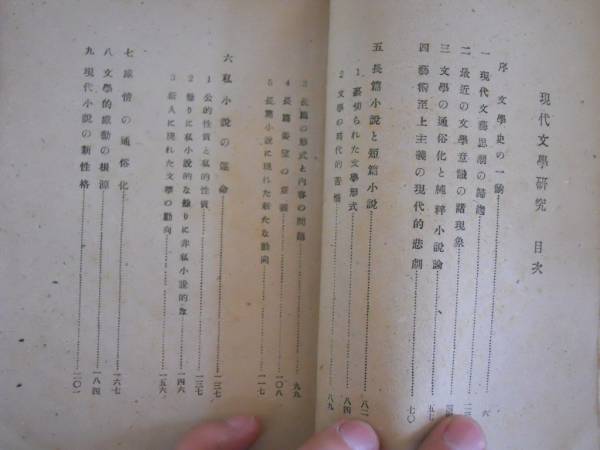 現代文學研究 目次
序 文學史の一
一 現代文藝思潮の
二 最近の文學意識の諸現象
三 文學の通俗化と純粹小說論
四 藝術至上主義の現代的悲劇 七〇
五 長篇小說と短篇小說 八二
1 裏切られた文學形式 八四
2 文學の時代的苦惱 八九
3 長篇の形式と內容の問題 九九
4 長篇 の意義 一〇八
5 長篇小說に現れた新たな動向 一一七
六 私小說の運命 一三七
1 公的性質と私的性質 一三七
2 餘りに私小說的な餘りに非私小說的な 一四六
3 新人に現れた文學の動向 一五六
七 感情の通俗化 一六七
八 文學的感動の根源 一八四
九 現代小說の新性格 二〇一